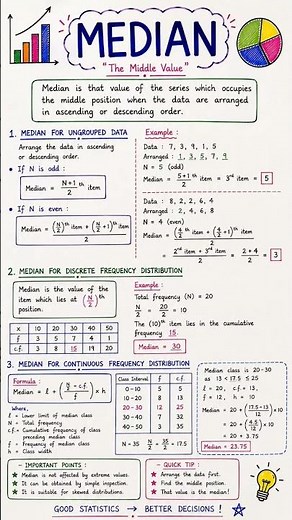 MEDIAN
"The Middle Value"
Median is that value of the series which occupies
the middle position when the data are arranged
in ascending or descending order.
1. MEDIAN FOR UNGROUPED DATA
Arrange the data in ascending
or descending order.
• If N is odd :
Median = N+1/2 th item
• If N is even :
Median = (N/2)th item + (N/2 + 1)th item / 2
Example :
Data : 7, 3, 9, 1, 5
Arranged : 1, 3, 5, 7, 9
N = 5 (odd)
Median = 5+1/2 th item = 3rd item = 5
Data : 8, 2, 2, 6, 4
Arranged : 2, 4, 6, 8
N = 4 (even)
Median = (4/2)th item + (4/2 + 1)th item / 2
= 2nd item + 3rd item / 2 = 2+4/2 = 3
2. MEDIAN FOR DISCRETE FREQUENCY DISTRIBUTION
Median is the value of the
item which lies at (N/2)th
position.
x 10 20 30 40 50
f 3 5 7 4 1
c.f. 3 8 15 19 20
Example :
Total frequency (N) = 20
N/2 = 20/2 = 10
The (10)th item lies in the cumulative
frequency 15.
Median = 30
3. MEDIAN FOR CONTINUOUS FREQUENCY DISTRIBUTION
Formula :
Median = l + (N/2 - c.f. / f) × h
where,
l = Lower limit of median class
N = Total frequency
c.f. = Cumulative frequency of class
preceding median class
f = Frequency of median class
h = Class width
Class Interval f c.f.
0-10 5 5
10-20 8 13
20-30 12 25
30-40 7 32
40-50 3 35
N = 35 N/2 = 35/2 = 17.5
Median class is 20-30
as 13 < 17.5 ≤ 25
l = 20, c.f. = 13,
f = 12, h = 10
Median = 20 + (17.5-13/12) × 10
= 20 + (4.5/12) × 10
= 20 + 3.75
Median = 23.75
IMPORTANT POINTS :
★ Median is not affected by extreme values.
★ It can be obtained by simple inspection.
★ It is suitable for skewed distributions.
QUICK TIP :
★ Arrange the data first.
★ Find the middle position.
★ That value is the median!
GOOD STATISTICS → BETTER DECISIONS !